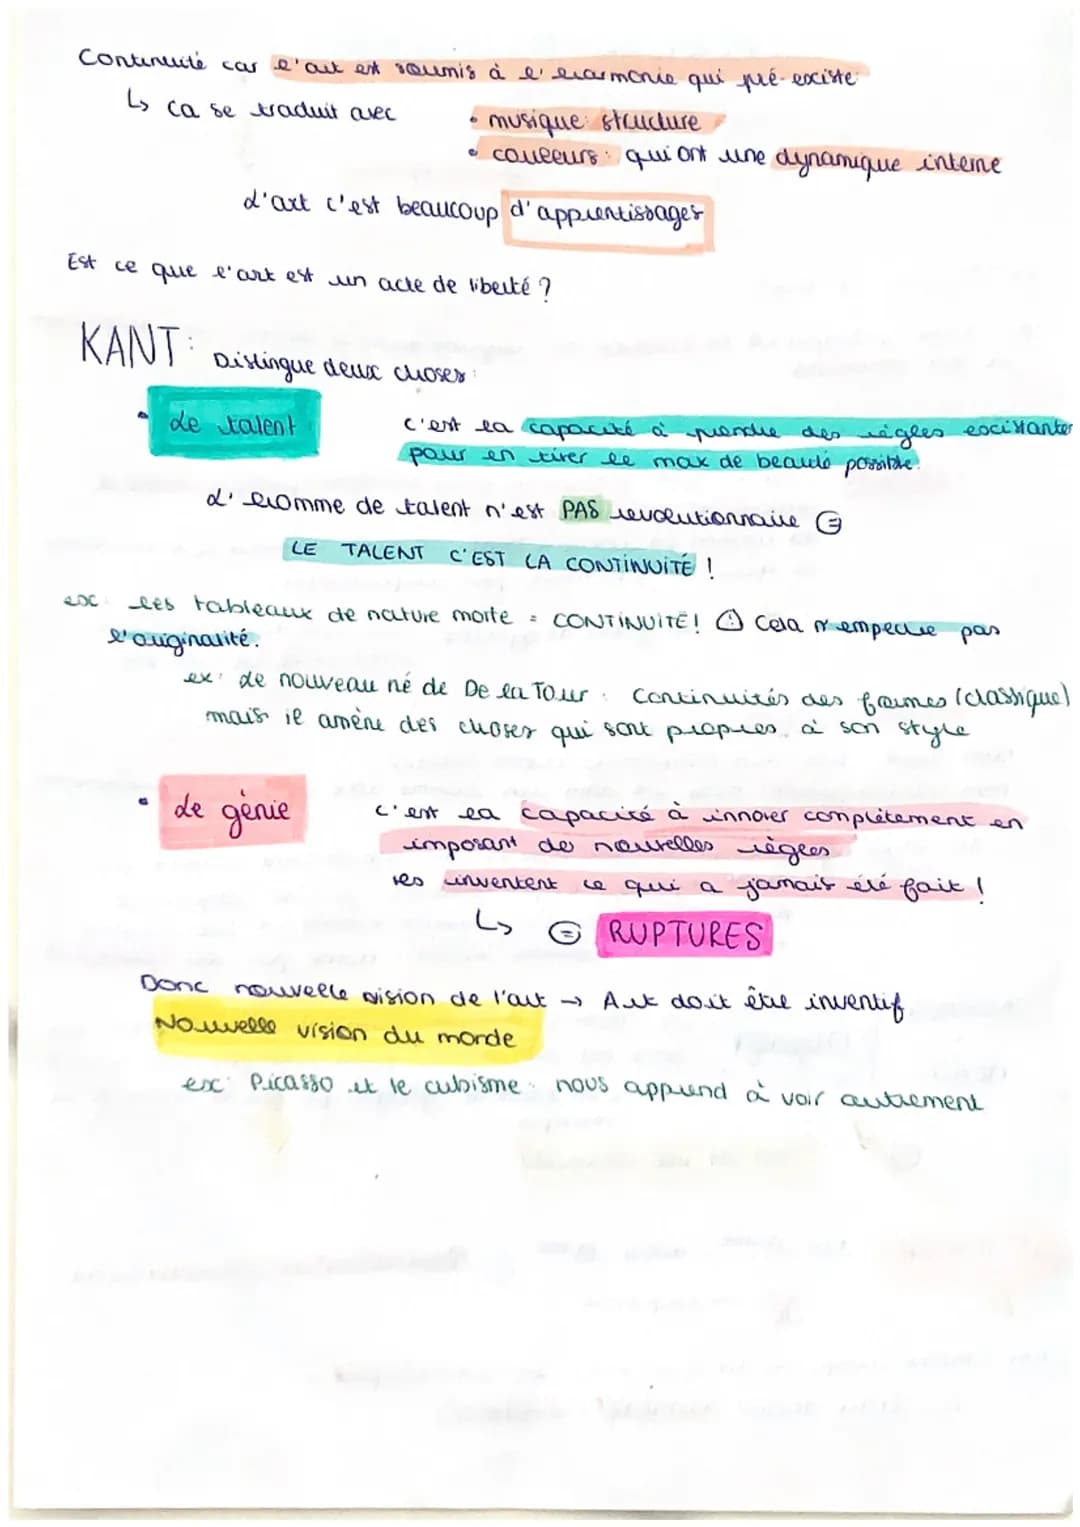 Continuité car l'art est soumis à l'harmonie qui pré-existe
↳ ça se traduit avec • musique: structure
• couleurs: qui ont une dynamique interne
L'art c'est beaucoup d'apprentissages
Est ce que l'art est un acte de liberté ?
KANT: Distingue deux choses:
• Le talent c'est la capacité à prendre des règles existantes
pour en tirer le max de beauté possible.
L'homme de talent n'est PAS revolutionnaire =
LE TALENT C'EST LA CONTINUITÉ !
ex: les tableaux de nature morte = CONTINUITÉ! ! Cela n'empeche pas
l'originalité.
ex: Le nouveau né de De La Tour: Continuités des formes (classique)
mais il amène des choses qui sont propres à son style
• Le génie c'est la capacité à innover complètement en
imposant de nouvelles règles
res inventent ce qui a jamais été fait !
↳ = RUPTURES
Donc nouvelle vision de l'art → Art doit être inventif
Nouvelle vision du monde
ex: Picasso et le cubisme: nous apprend à voir autrement